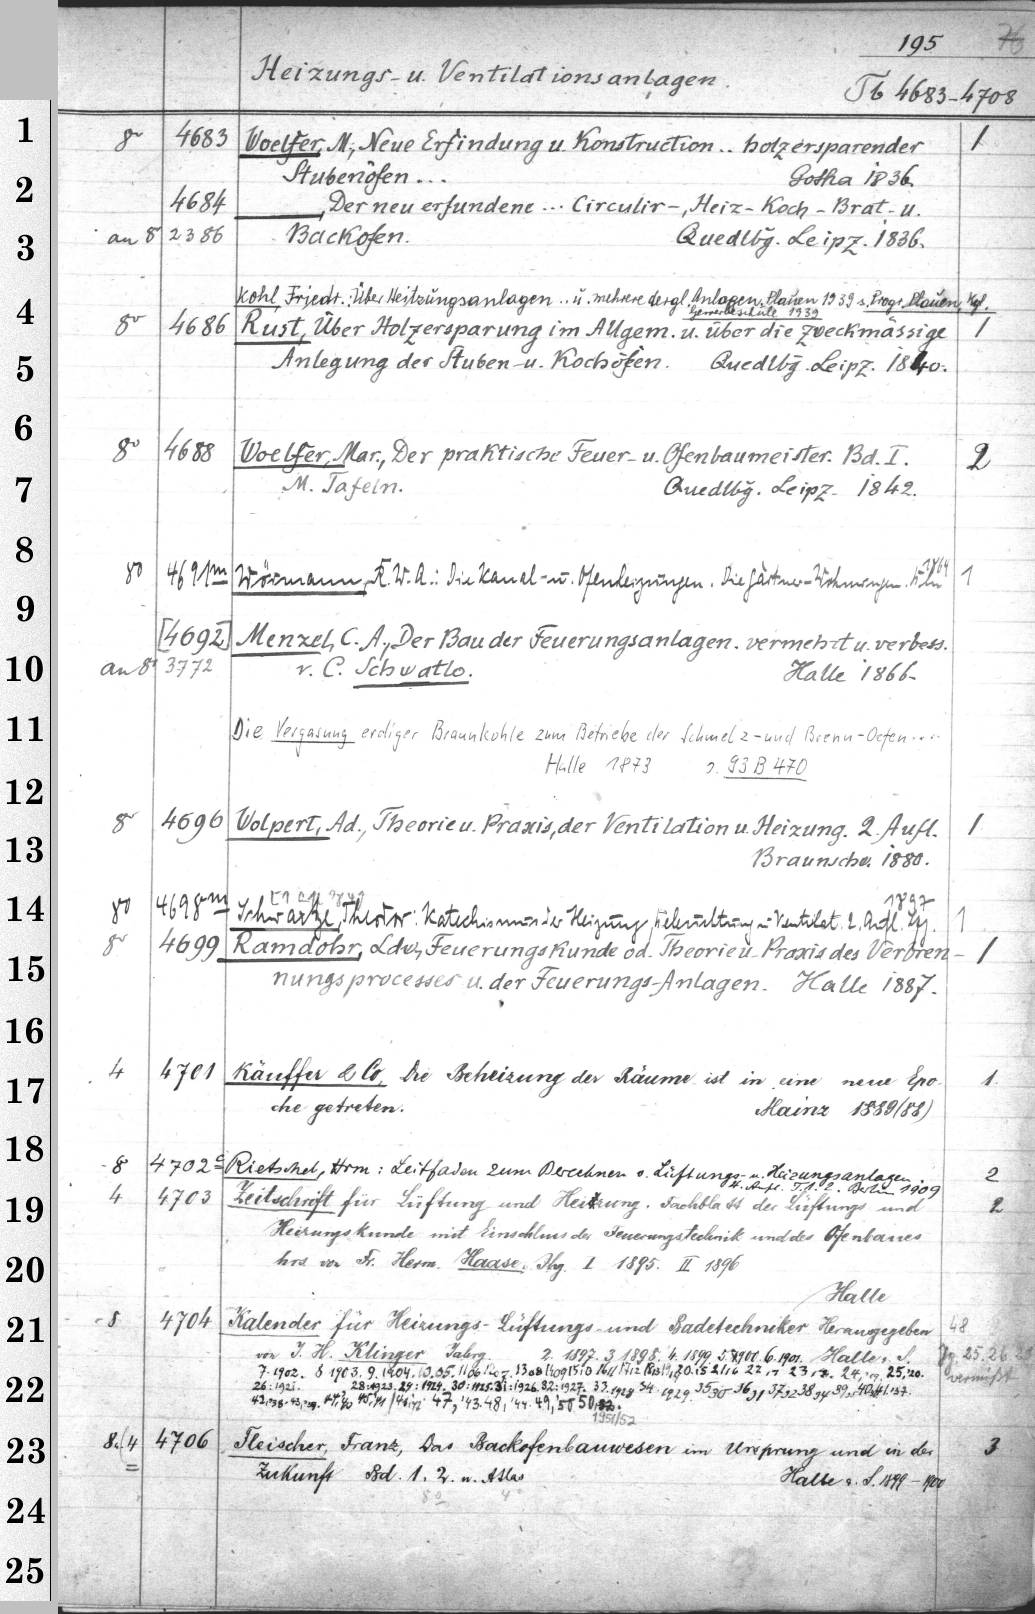 195 76
Heizungs- u. Ventilationsanlagen.
Tb 4683-4708
1
8° 4683 Woelfer, M., Neue Erfindung u. Konstruction .. holzersparender 1
2
Stubenöfen ... Gotha 1836.
4684 ———, Der neu erfundene ... Circulir-, Heiz- Koch- Brat- u.
3
an 8° 2386 Backofen. Quedlbg. Leipz. 1836.
Kohl, Friedr.: Über Heitzungsanlagen .. u. mehrere dergl. Anlagen. Plauen 1939 s. Progr. Plauen, Kgl.
Gewerbeschule 1939
4
8° 4686 Rust, Über Holzersparung im Allgem. u. über die zweckmässige 1
5
Anlegung der Stuben- u. Kochöfen. Quedlbg. Leipz. 1840.
6
8° 4688 Woelfer, Mar., Der praktische Feuer- u. Ofenbaumeister. Bd. I. 2
7
M. Tafeln. Quedlbg. Leipz. 1842.
8
8° 4691m Wörmann, R. W. A.: Die Kanal- u. Ofenheizungen. Die Gärtner-Wohnungen. 1864 1
9
[4692] Menzel, C. A., Der Bau der Feuerungsanlagen. vermehrt u. verbess.
10
an 8° 3772 v. C. Schwatlo. Halle 1866.
11
Die Vergasung erdiger Braunkohle zum Betriebe der Schmelz- und Brenn-Oefen....
Halle 1873 s. 93 B 470
12
8° 4696 Wolpert, Ad., Theorie u. Praxis, der Ventilation u. Heizung. 2. Aufl. 1
13
Braunschw. 1880.
14
8° 4698m Schwartze, Theodor: Katechismus der Heizung, Beleuchtung u. Ventilat. 2. Aufl. Lpz. 1897 1
8° 4699 Ramdohr, Ldw., Feuerungskunde od. Theorie u. Praxis des Verbren- 1
15
nungsprocesses u. der Feuerungs-Anlagen. Halle 1887.
16
4 4701 Käuffer & Co, Die Beheizung der Räume ist in eine neue Epo- 1
17
che getreten. Mainz 1889(/88)
18
8 4702c Rietschel, Hrm: Leitfaden zum Berechnen v. Lüftungs- u. Heizungsanlagen 2
4. Aufl. T. 1. 2. Berlin 1909
19
4 4703 Zeitschrift für Lüftung und Heitzung. Fachblatt der Lüftungs und 2
Heizungskunde mit Einschluss der Feuerungstechnik und des Ofenbaues
20
hrs von Fr. Herm. Haase. Jhg. I 1895. II 1896
Halle
21
8 4704 Kalender für Heizungs- Lüftungs- und Badetechniker Herausgegeben 48
von J. H. Klinger Jahrg. 2. 1897. 3 1898. 4. 1899 5. 1900. 6. 1901. Halle a. S. Jg. 25. 26. 29
22
7. 1902. 8 1903. 9. 1904. 10. 05. 11 06 12 07 13 08 14 09 15 10 16 11 17 12 18 13 19 14 20. 15 21. 16 22. 17 23. 18. 24. 19. 25. 20. vermißt
26: 1921. 28: 1923. 29: 1924. 30: 1925. 31: 1926. 32: 1927. 33. 1928 34. 1929. 35 30 36 31 37 32 38 34 39 35 40 36 41 37.
42, 38. 43, 39. 44, 40 45, 41 46, 42 47, '43. 48, '44. 49, '50 50,
1951/52
23
8. (4 4706 Fleischer, Franz, Das Backofenbauwesen im Ursprung und in der 3
Zukunft Bd. 1. 2. u. Atlas Halle a. S. 1899-1900
8° 4°
24
25